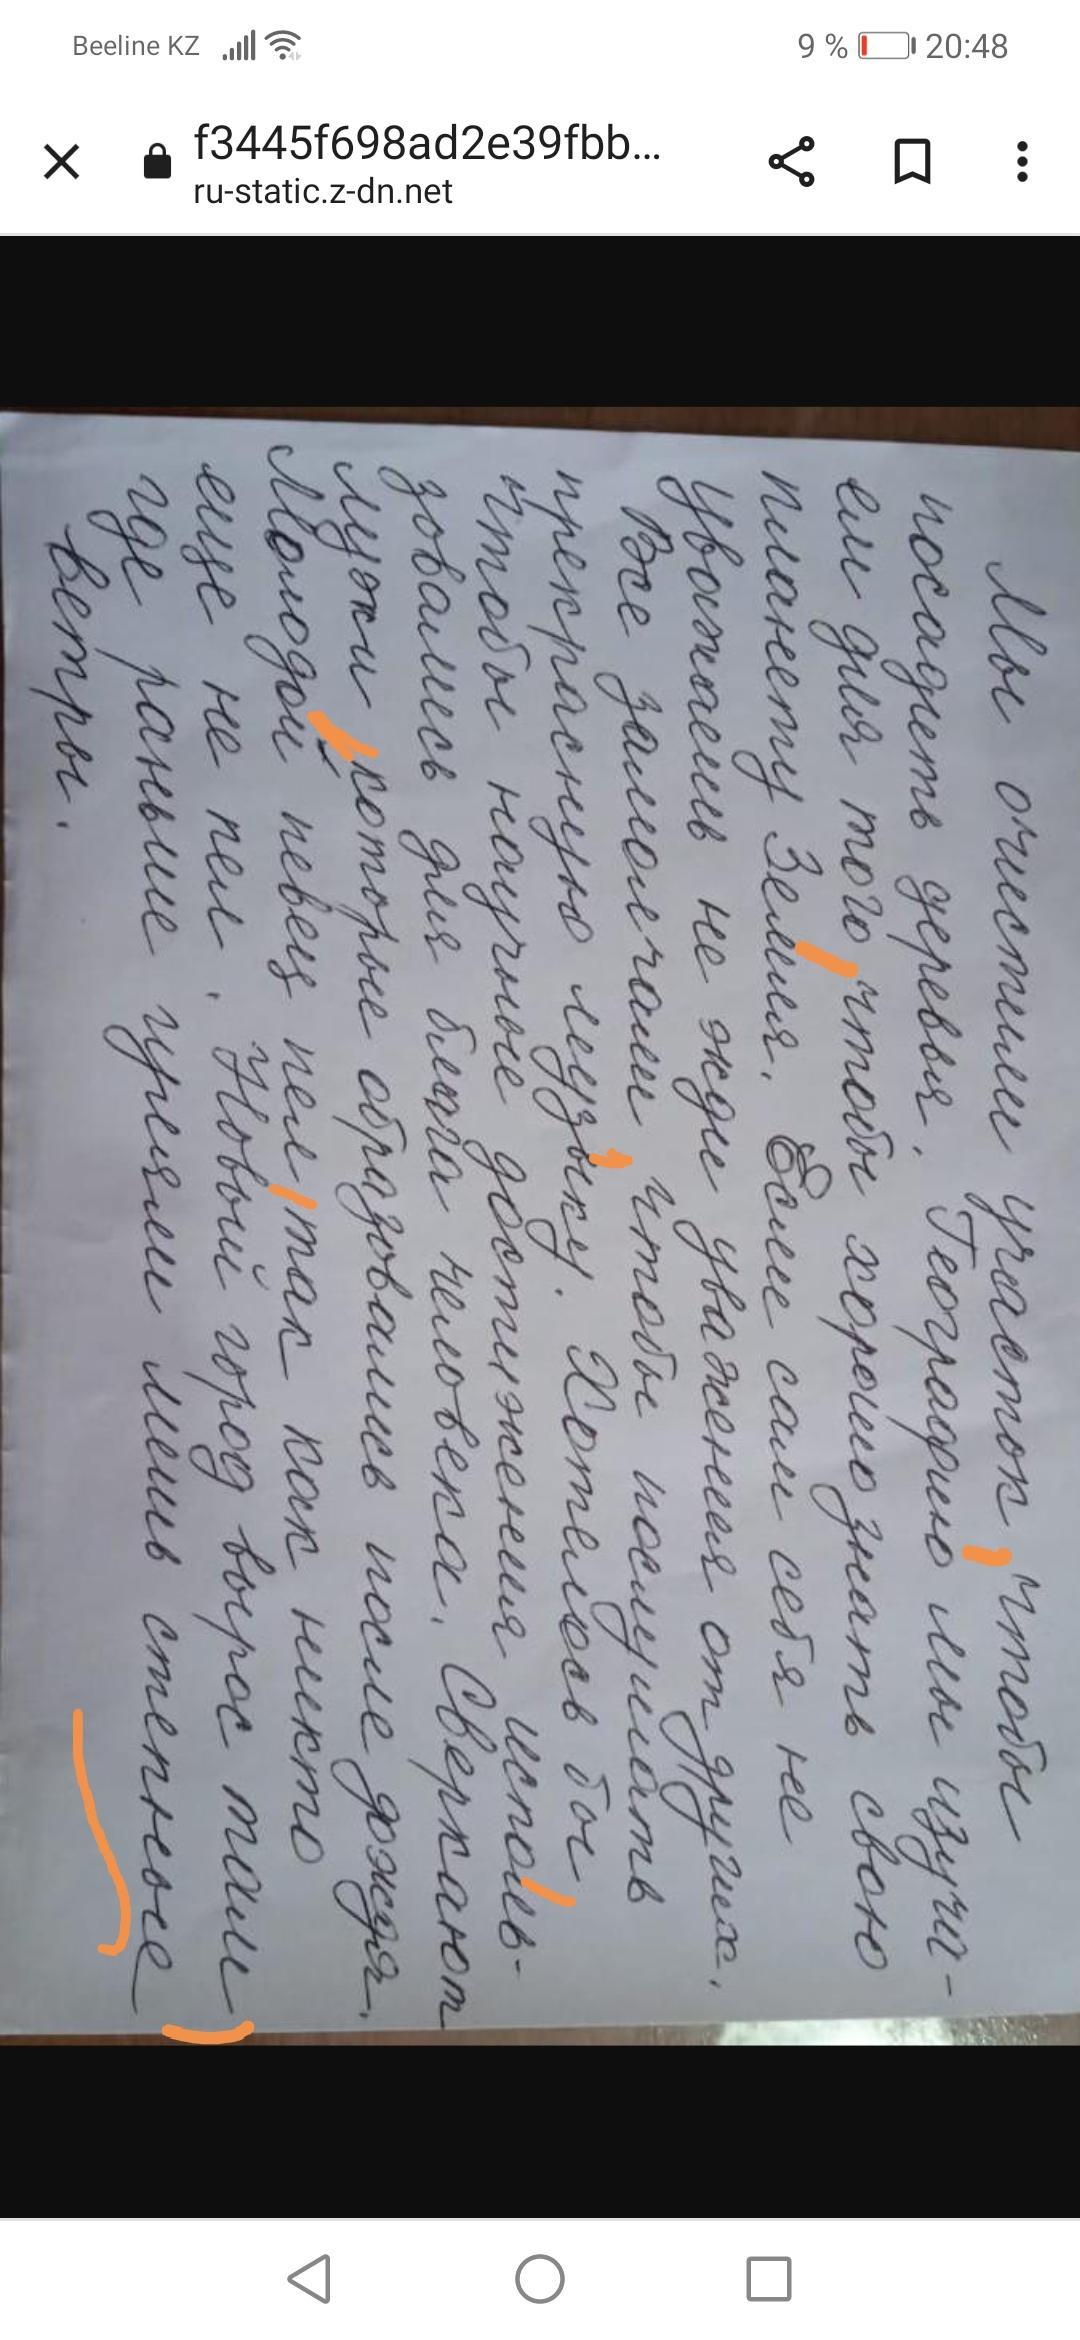 Beeline KZ 9 % 20:48
f3445f698ad2e39fbb...
ru-static.z-dn.net
Мы очистили участок, чтобы
посадить деревья. Географию мы изучи-
ем для того, чтобы хорошо знать свою
планету Земля. Если сам себя не
уважаешь не жди уважения от других.
Все замолчали, чтобы послушать
прекрасную музыку. Хотелось бы,
чтобы научные достижения исполь-
зовались для блага человека. Сверкают
лужи, которые образовались после дождя.
Молодой певец пел, так как никто
еще не пел. Новый город вырос там,
где раньше гуляли лишь степные
ветры.